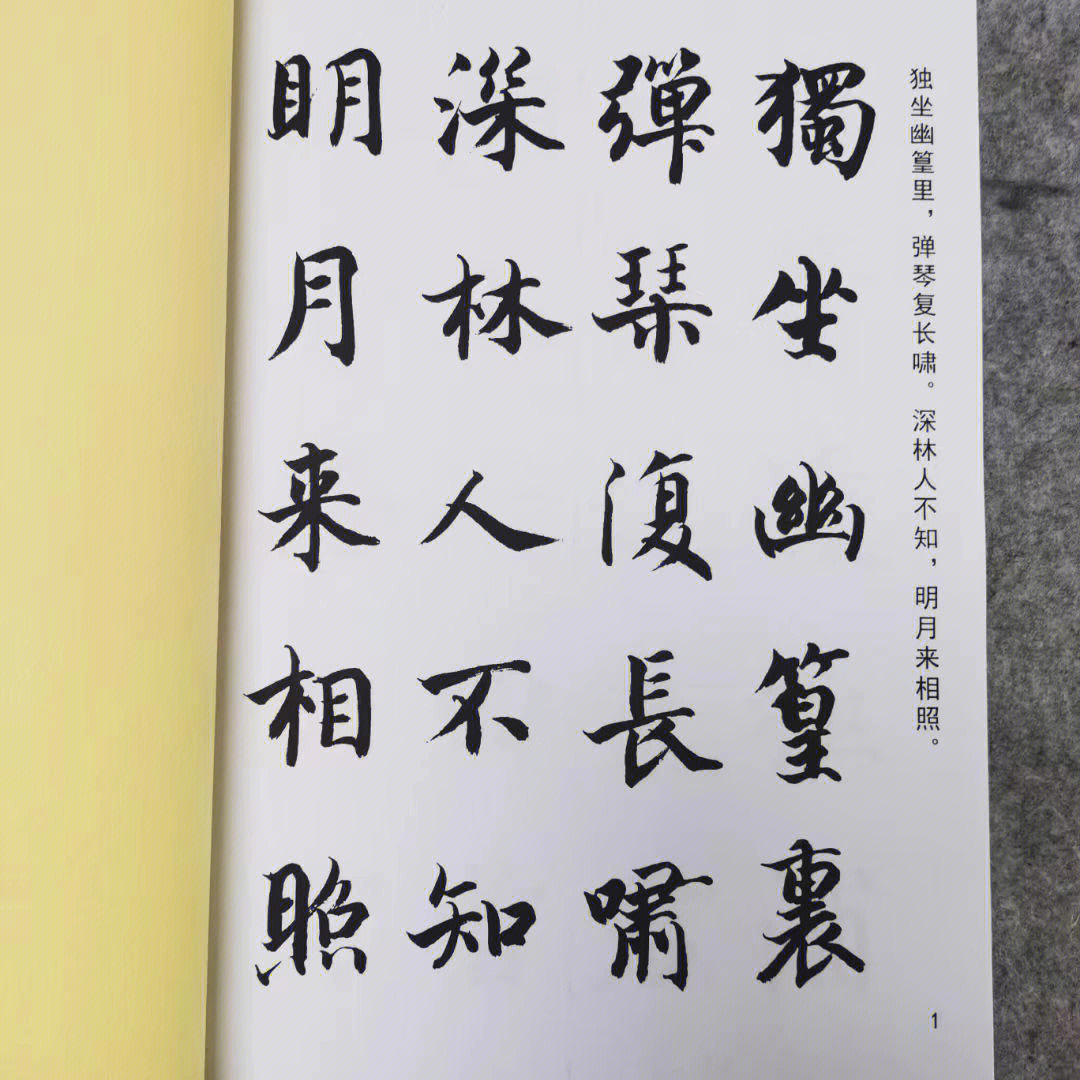 独坐幽篁里，弹琴复长啸。深林人不知，明月来相照。
獨坐幽篁裏
彈琴復長嘯
深林人不知
明月来相照
1